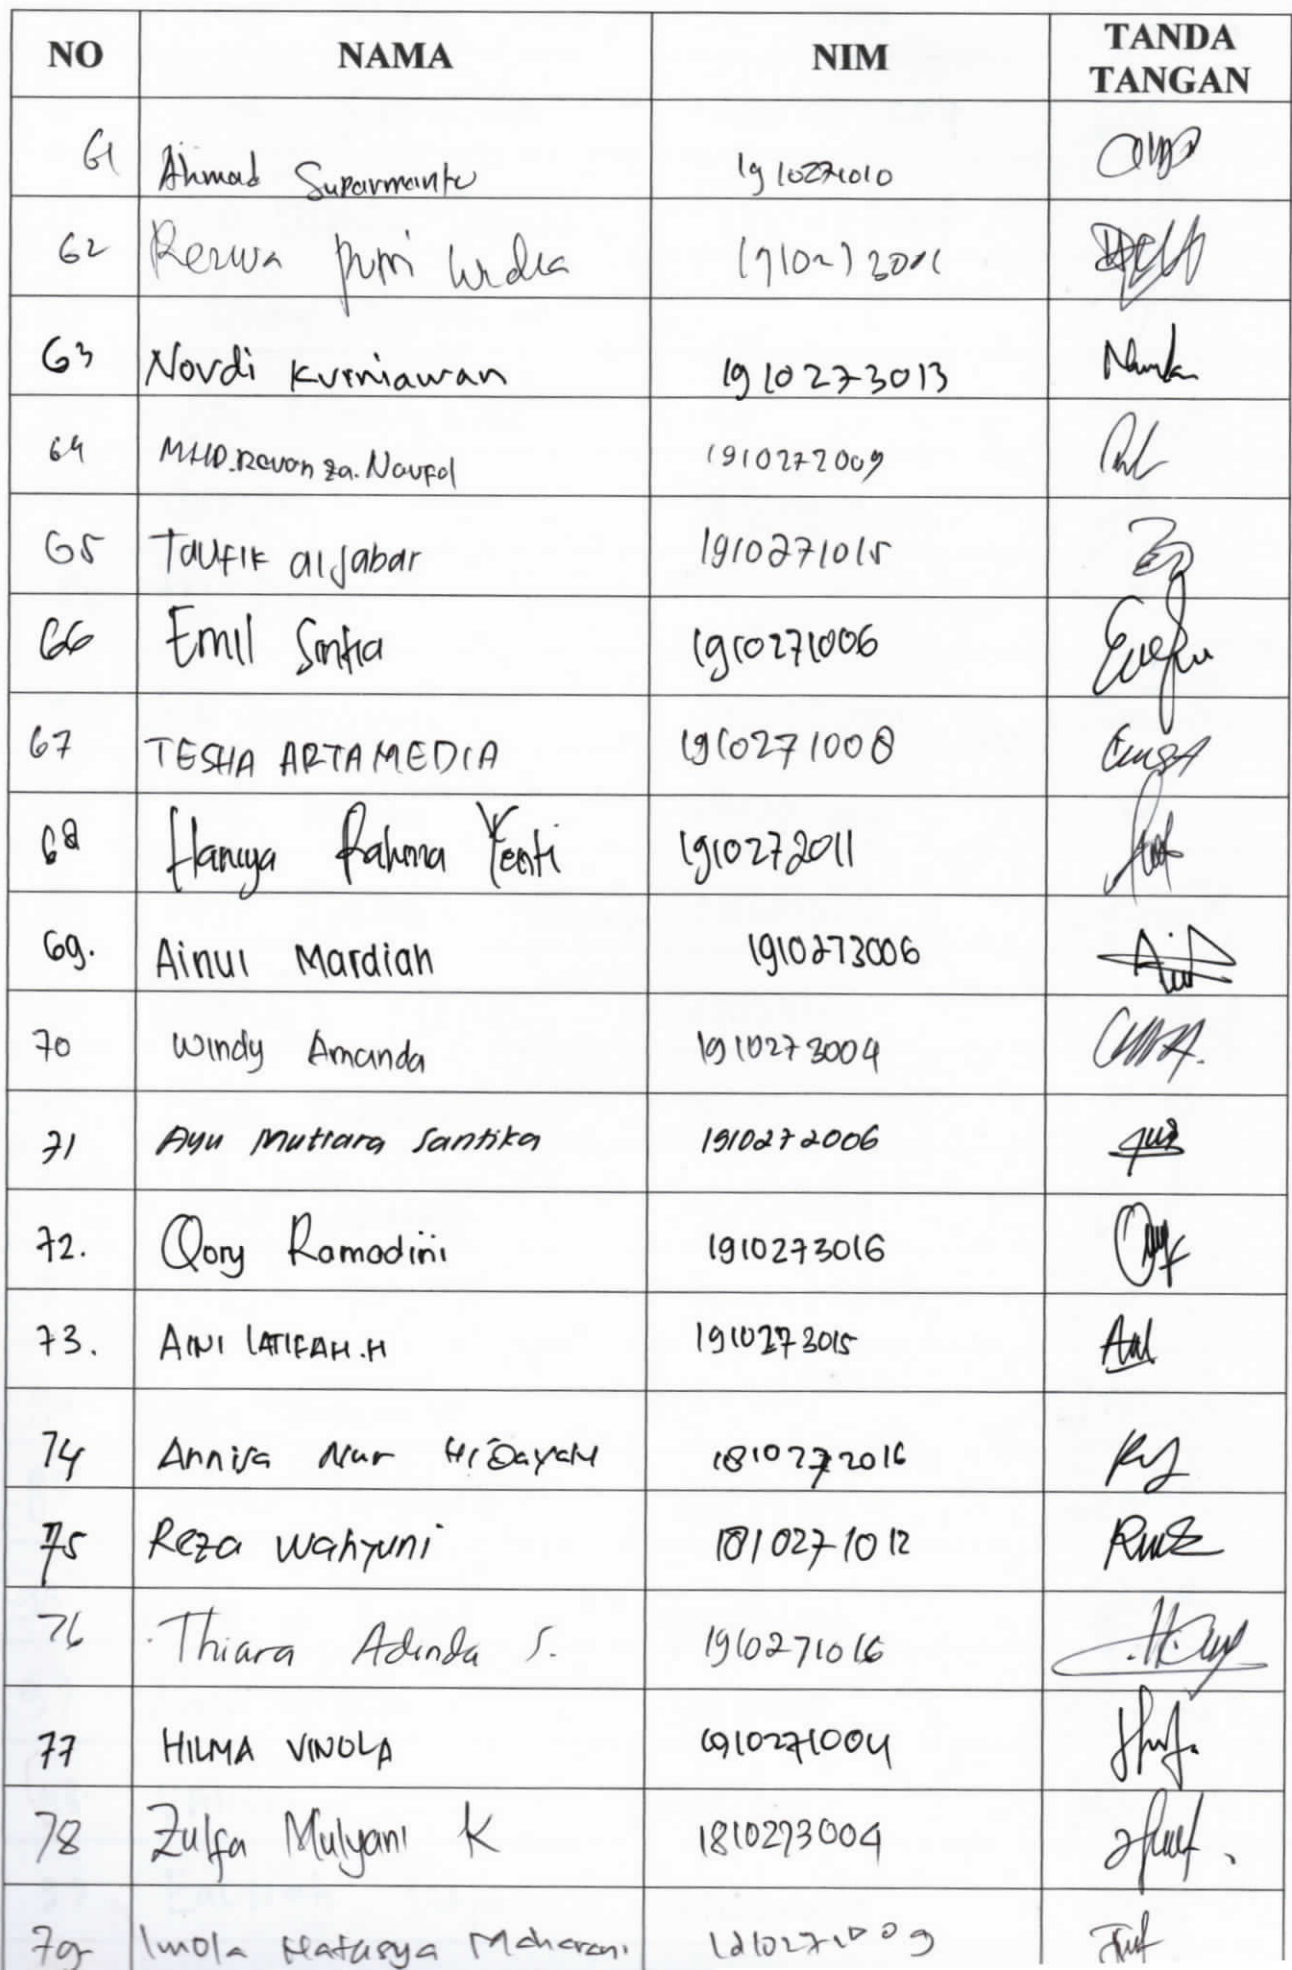 NO NAMA NIM TANDA TANGAN
61 Ahmad Suparmanto 1910271010
62 Rezwa putri
63 Novdi Kurniawan 1910273013
64 MHD.Revanza.Naufal 1910272009
65 Taufik aljabar 1910271015
66 Emil Sintia 1910271006
67 TESHA ARTAMEDIA 1910271008
68 Haniya Rahma Yenti 1910272011
69. Ainul Mardiah 1910273006
70 Windy Amanda 1910273004
71 Ayu Mutiara Santika 1910272006
72. Qory Ramadini 1910273016
73. AINI LATIFAH.H 1910273015
74 Annisa Nur Hidayah 1810272016
75 Reza Wahyuni 1810271012
76 Thiara Adinda S. 1910271016
77 HILMA VINOLA 1910271004
78 Zulfa Mulyani K 1810273004
79 Imola Natasya Maharani